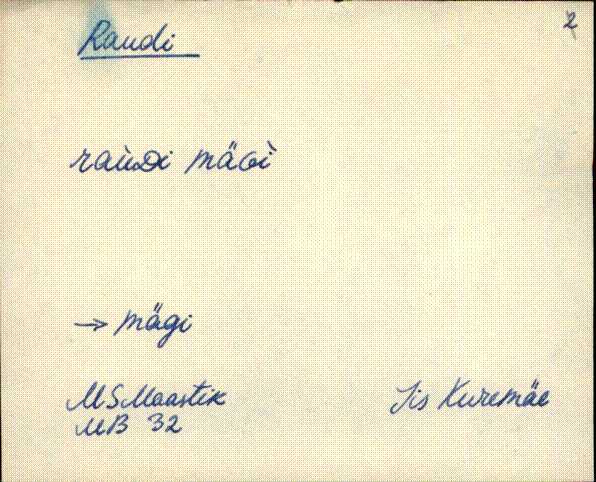 2
Raudi
raùᴅi mäGì
→ mägi
MS Maastik
MB 32
Iis Kuremäe